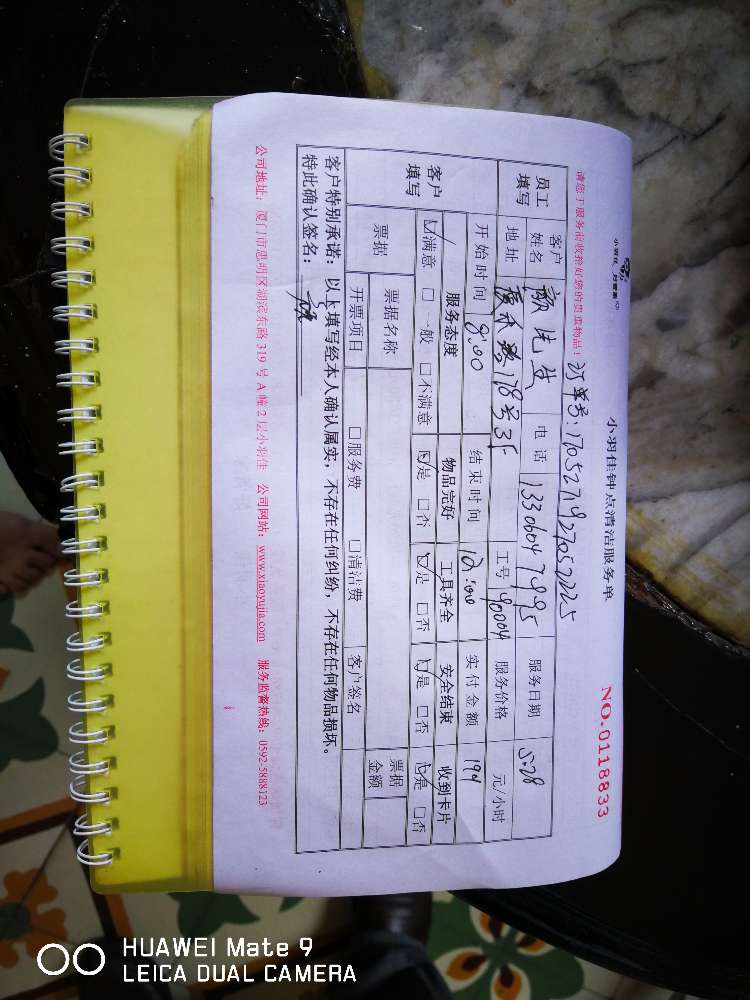 小羽佳钟点清洁服务单
NO.0118833
请您于服务前收拾好您的贵重物品! 订单号:
员工填写 客户姓名 颜先生 电话 13306047995 服务日期 5.28
地址 178号 工号 90004 服务价格 元/小时
开始时间 8:00 结束时间 12:00 实付金额
客户填写 服务态度 物品完好 工具齐全 安全结束 收到卡片
☑满意 □一般 □不满意 ☑是 □否 ☑是 □否 ☑是 □否 ☑是 □否
票据 票据名称 票据金额
开票项目 □服务费 □清洁费 客户签名
客户特别承诺:以上填写经本人确认属实,不存在任何纠纷,不存在任何物品损坏。
特此确认签名:
公司地址:厦门市思明区湖滨东路 319 号 A 幢 2 层小羽佳 公司网站:www.xiaoyujia.com 服务监督热线:0592-5888123
HUAWEI Mate 9
LEICA DUAL CAMERA